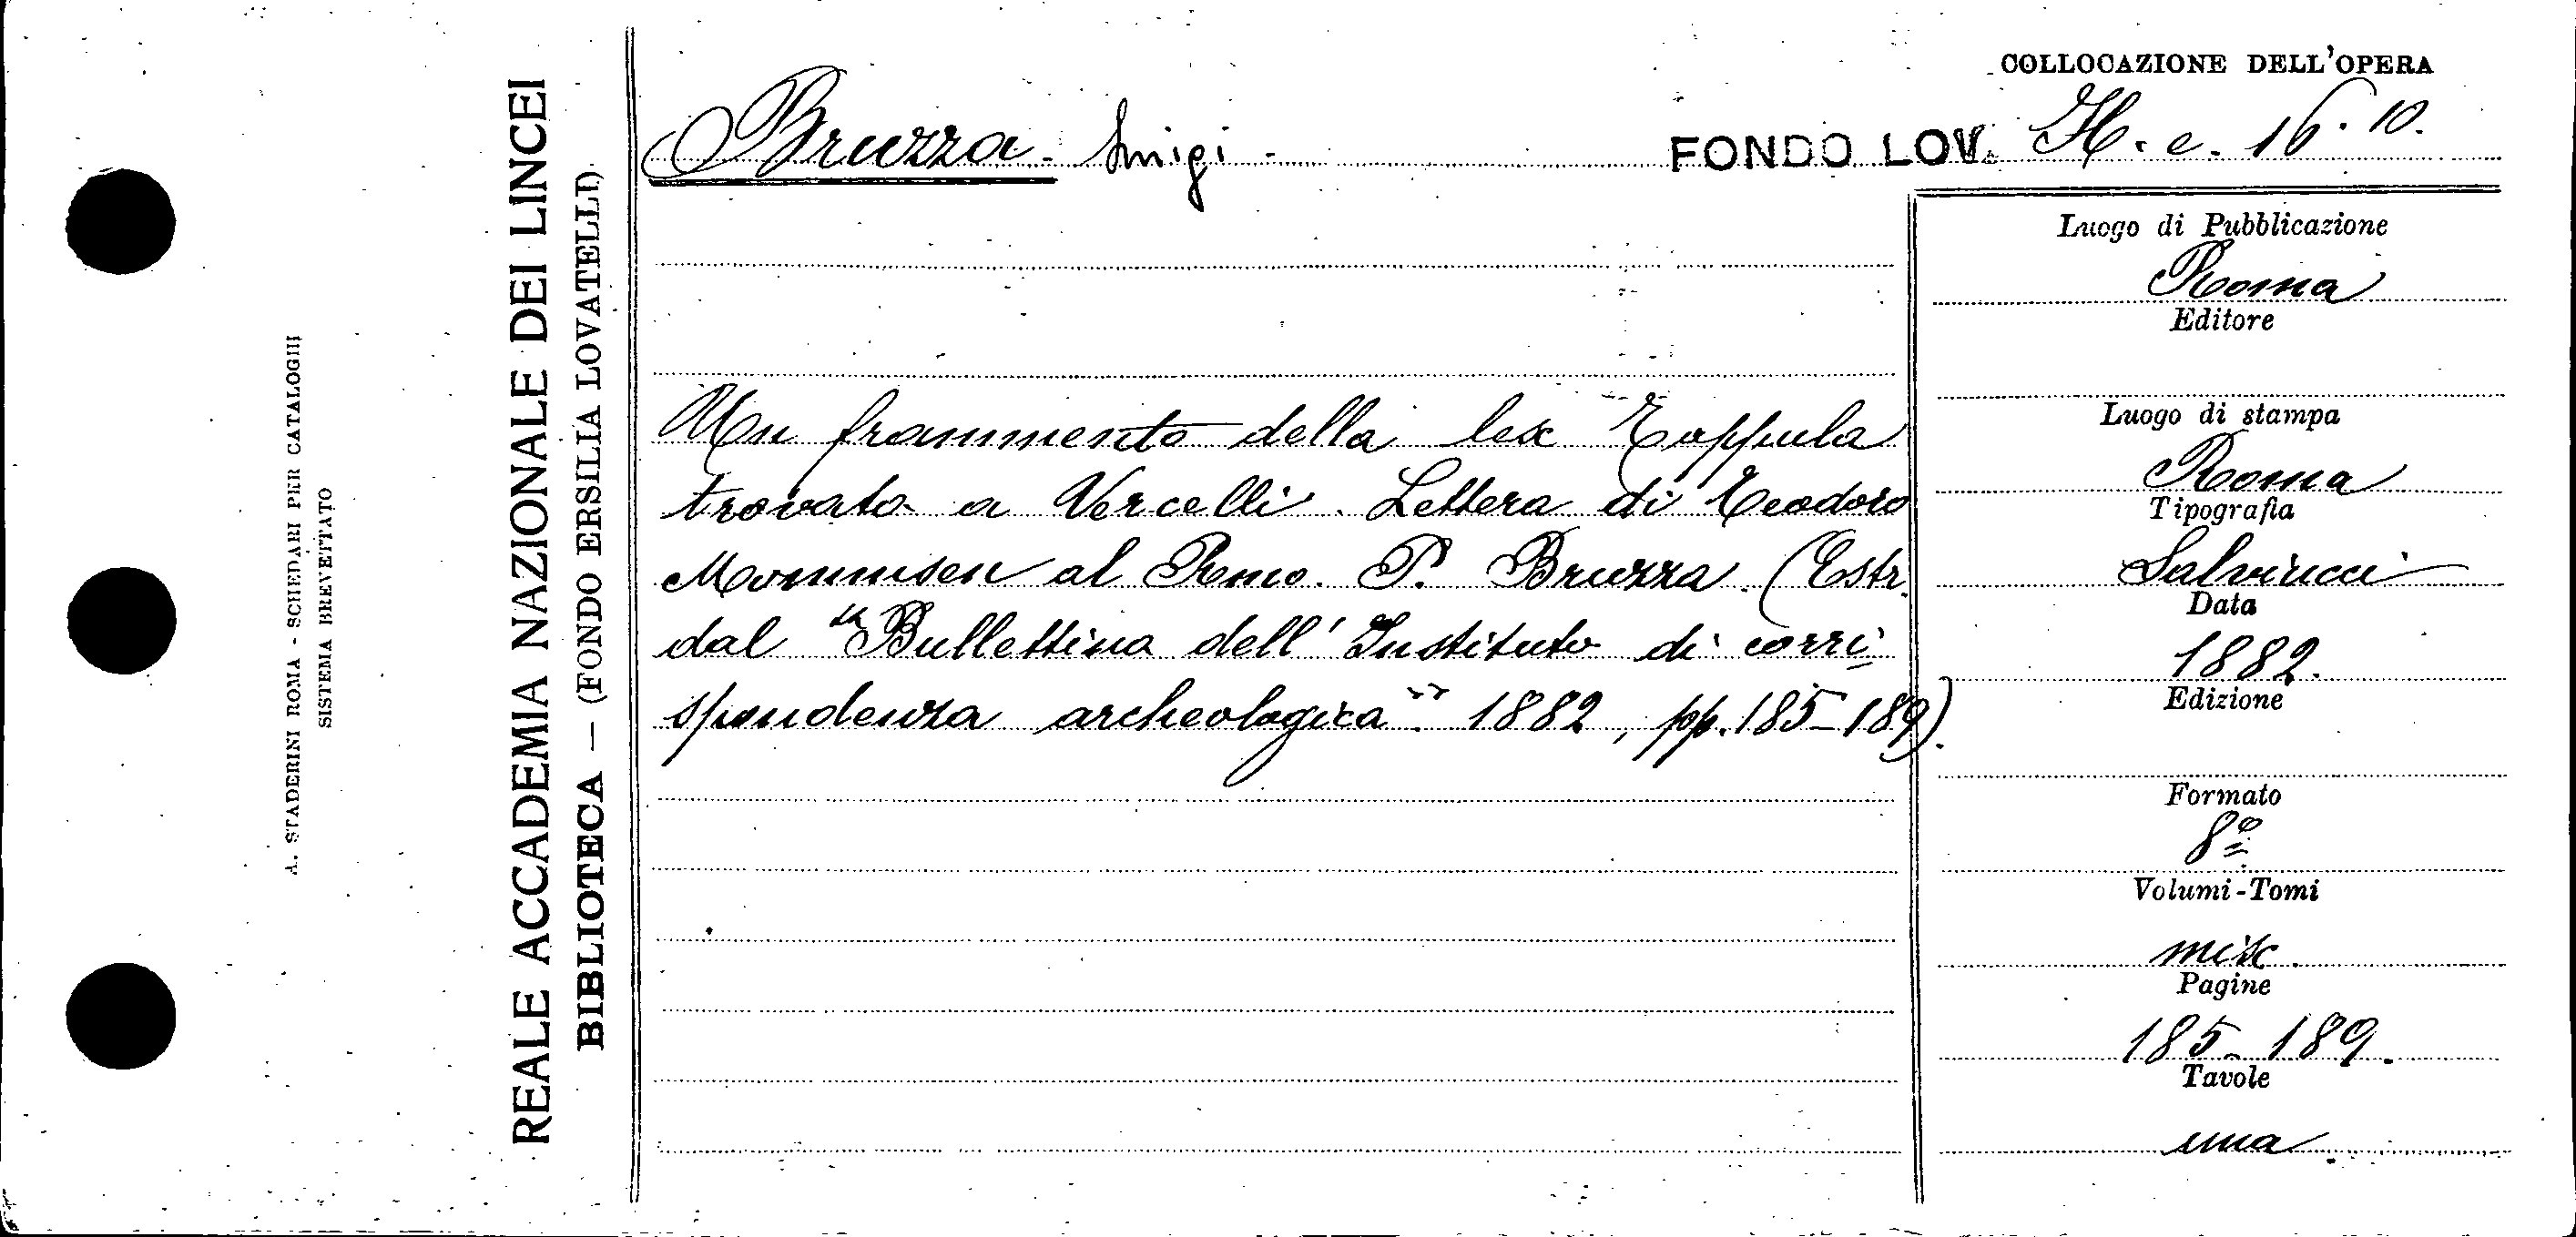 A. STADERINI ROMA - SCHEDARI PER CATALOGHI
SISTEMA BREVETTATO
REALE ACCADEMIA NAZIONALE DEI LINCEI
BIBLIOTECA — (FONDO ERSILIA LOVATELLI)
Bruzza - Luigi -
COLLOCAZIONE DELL'OPERA
FONDO LOV. H. e. 16. 10.
Un frammento della lex Tappula
trovato a Vercelli. Lettera di Teodoro
Mommsen al Rmo. P. Bruzza. (Estr.
dal "Bullettino dell'Instituto di corri
spondenza archeologica" 1882, pp. 185-189).
Luogo di Pubblicazione
Roma
Editore
Luogo di stampa
Roma
Tipografia
Salviucci
Data
1882.
Edizione
Formato
8º
Volumi-Tomi
misc.
Pagine
185-189.
Tavole
una